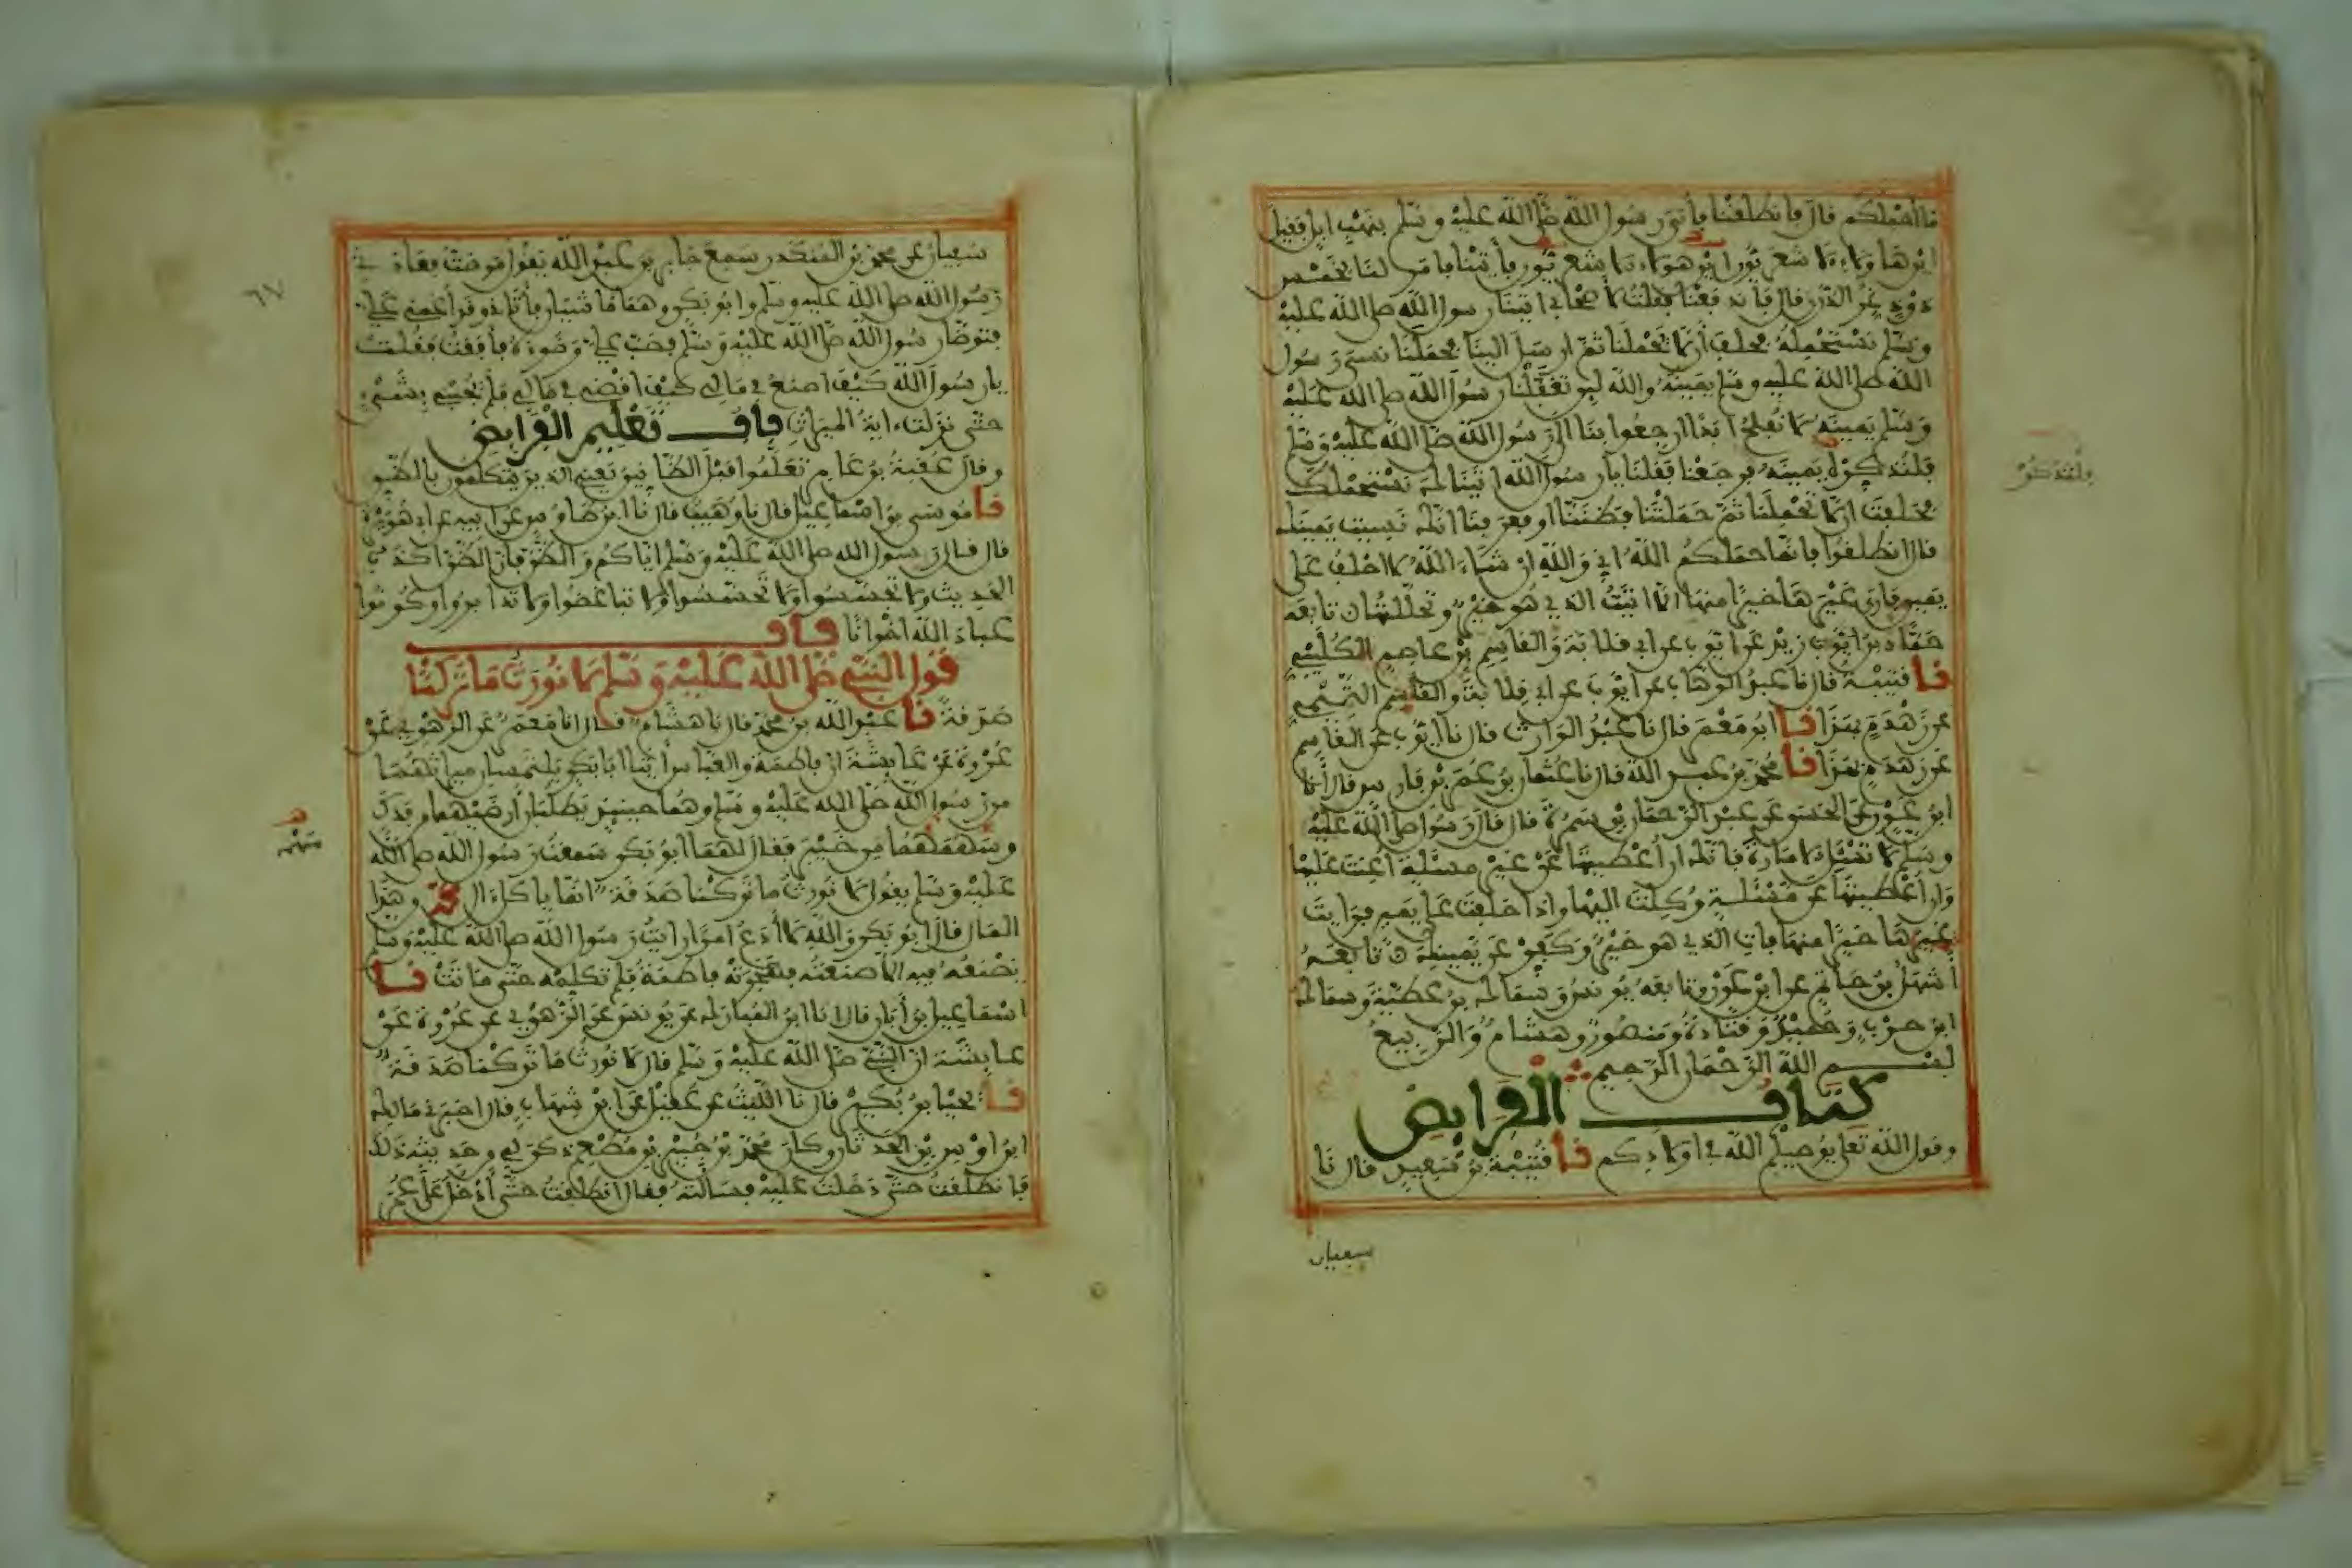 ما أحملكم قال فانطلقنا فأتي رسول الله صلى الله عليه وسلم بنهب ابل فقيل
اين هاولاء الاشعريون اين هولاء الاشعريون فأتينا فامر لنا بخمس
ذود غر الذرى قال فاندفعنا فقلت لأصحابي اتينا رسول الله صلى الله عليه
وسلم نستحمله فحلف أن لا يحملنا ثم ارسل الينا فحملنا نسي رسول
الله صلى الله عليه وسلم يمينه والله لين تغفلنا رسول الله صلى الله عليه
وسلم يمينه لا نفلح ابدا ارجعوا بنا الى رسول الله صلى الله عليه وسلم
فلنذكره يمينه فرجعنا فقلنا يا رسول الله اتيناك نستحملك
فحلفت ان لا تحملنا ثم حملتنا فظننا او فعرفنا انك نسيت يمينك
قال انطلقوا فانما حملكم الله اني والله ان شاء الله لا احلف على
يمين فارى غيرها خيرا منها الا اتيت الذي هو خير وتحللتها تابعه
حماد بن زيد عن ايوب عن ابي قلابة والقاسم بن عاصم الكليبي
نا قتيبة قال نا عبد الوهاب عن ايوب عن ابي قلابة والقاسم التميمي
عن زهدم بهذا نا ابو معمر قال نا عبد الوارث قال نا ايوب عن القاسم
عن زهدم بهذا نا محمد بن عبد الله قال نا عثمان بن عمر بن فارس قال أنا
ابن عون عن الحسن عن عبد الرحمان بن سمرة قال قال رسول الله صلى الله عليه
وسلم لا تسئل الامارة فانك ان أعطيتها عن غير مسئلة أعنت عليها
وان أعطيتها عن مسئلة وكلت اليها واذا حلفت على يمين فرايت
غيرها خيرا منها فات الذي هو خير وكفر عن يمينك تابعه
أشهل بن حاتم عن ابن عون وتابعه يونس وسماك بن عطية وسماك
ابن حرب وحميد وقتادة ومنصور وهشام والربيع
بسم الله الرحمان الرحيم
كتاب الفرايض
وقول الله تعلى يوصيكم الله في اولادكم نا قتيبة بن سعيد قال نا
سفيان
فلنذكره
سفيان عن محمد بن المنكدر سمع جابر بن عبد الله يقول مرضت فعادني
رسول الله صلى الله عليه وسلم وابو بكر وهما ماشيان فأتاني وقد أغمي علي
فتوضأ رسول الله صلى الله عليه وسلم فصب علي وضوءه فأفقت فقلت
يا رسول الله كيف اصنع في مالي كيف اقضي في مالي فلم يجبني بشيء
حتى نزلت اية الميراث باب تعليم الفرايض
وقال عقبة بن عامر تعلموا قبل الظانين يعني الذين يتكلمون بالظن
نا موسى بن اسماعيل قال نا وهيب قال نا ابن طاوس عن ابيه عن ابي هريرة
قال قال رسول الله صلى الله عليه وسلم اياكم والظن فان الظن اكذب
الحديث ولا تحسسوا ولا تجسسوا ولا تباغضوا ولا تدابروا وكونوا
عباد الله اخوانا باب
قول النبي صلى الله عليه وسلم لا نورث ما تركنا
صدقة نا عبد الله بن محمد قال نا هشام قال انا معمر عن الزهري عن
عروة عن عايشة ان فاطمة والعباس أتيا ابا بكر يلتمسان ميراثهما
من رسول الله صلى الله عليه وسلم وهما حينيذ يطلبان أرضيهما من فدك
وسهمهما من خيبر فقال لهما ابو بكر سمعت رسول الله صلى الله
عليه وسلم يقول لا نورث ما تركنا صدقة انما ياكل ال محمد من هذا
المال قال ابو بكر والله لا أدع امرا رايت رسول الله صلى الله عليه وسلم
يصنعه فيه الا صنعته فهجرته فاطمة فلم تكلمه حتى ماتت نا
اسماعيل بن أبان قال انا ابن المبارك عن يونس عن الزهري عن عروة عن
عايشة ان النبي صلى الله عليه وسلم قال لا نورث ما تركنا صدقة
نا يحيى بن بكير قال نا الليث عن عقيل عن ابن شهاب قال اخبرني مالك
ابن اوس بن الحدثان وكان محمد بن جبير بن مطعم ذكر لي من حديثه ذلك
فانطلقت حتى دخلت عليه فسألته فقال انطلقت حتى أدخل على عمر
٦٧